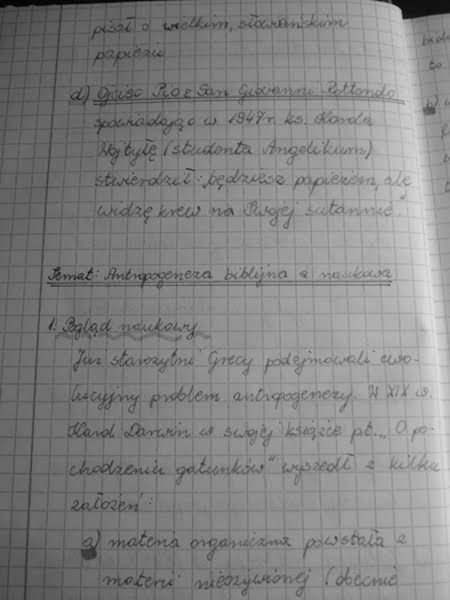 pisał o wielkim, słowiańskim
papieżu
d) Ojciec Pio z San Giovanni Rottondo
spowiadając w 1947r. ks. Karola
Wojtyłę (studenta Angelikum)
stwierdził: „będziesz papieżem, ale
widzę krew na Twojej sutannie."
Temat: Antropogeneza biblijna a naukowa
1. Pogląd naukowy
Już starożytni Grecy podejmowali ewo-
lucyjny problem antropogenezy. W XIX w.
Karol Darwin w swojej książce pt. „O po-
chodzeniu gatunków" wyszedł z kilku
założeń:
a) materia organiczna powstała z
materii nieożywionej (obecnie
to
b)